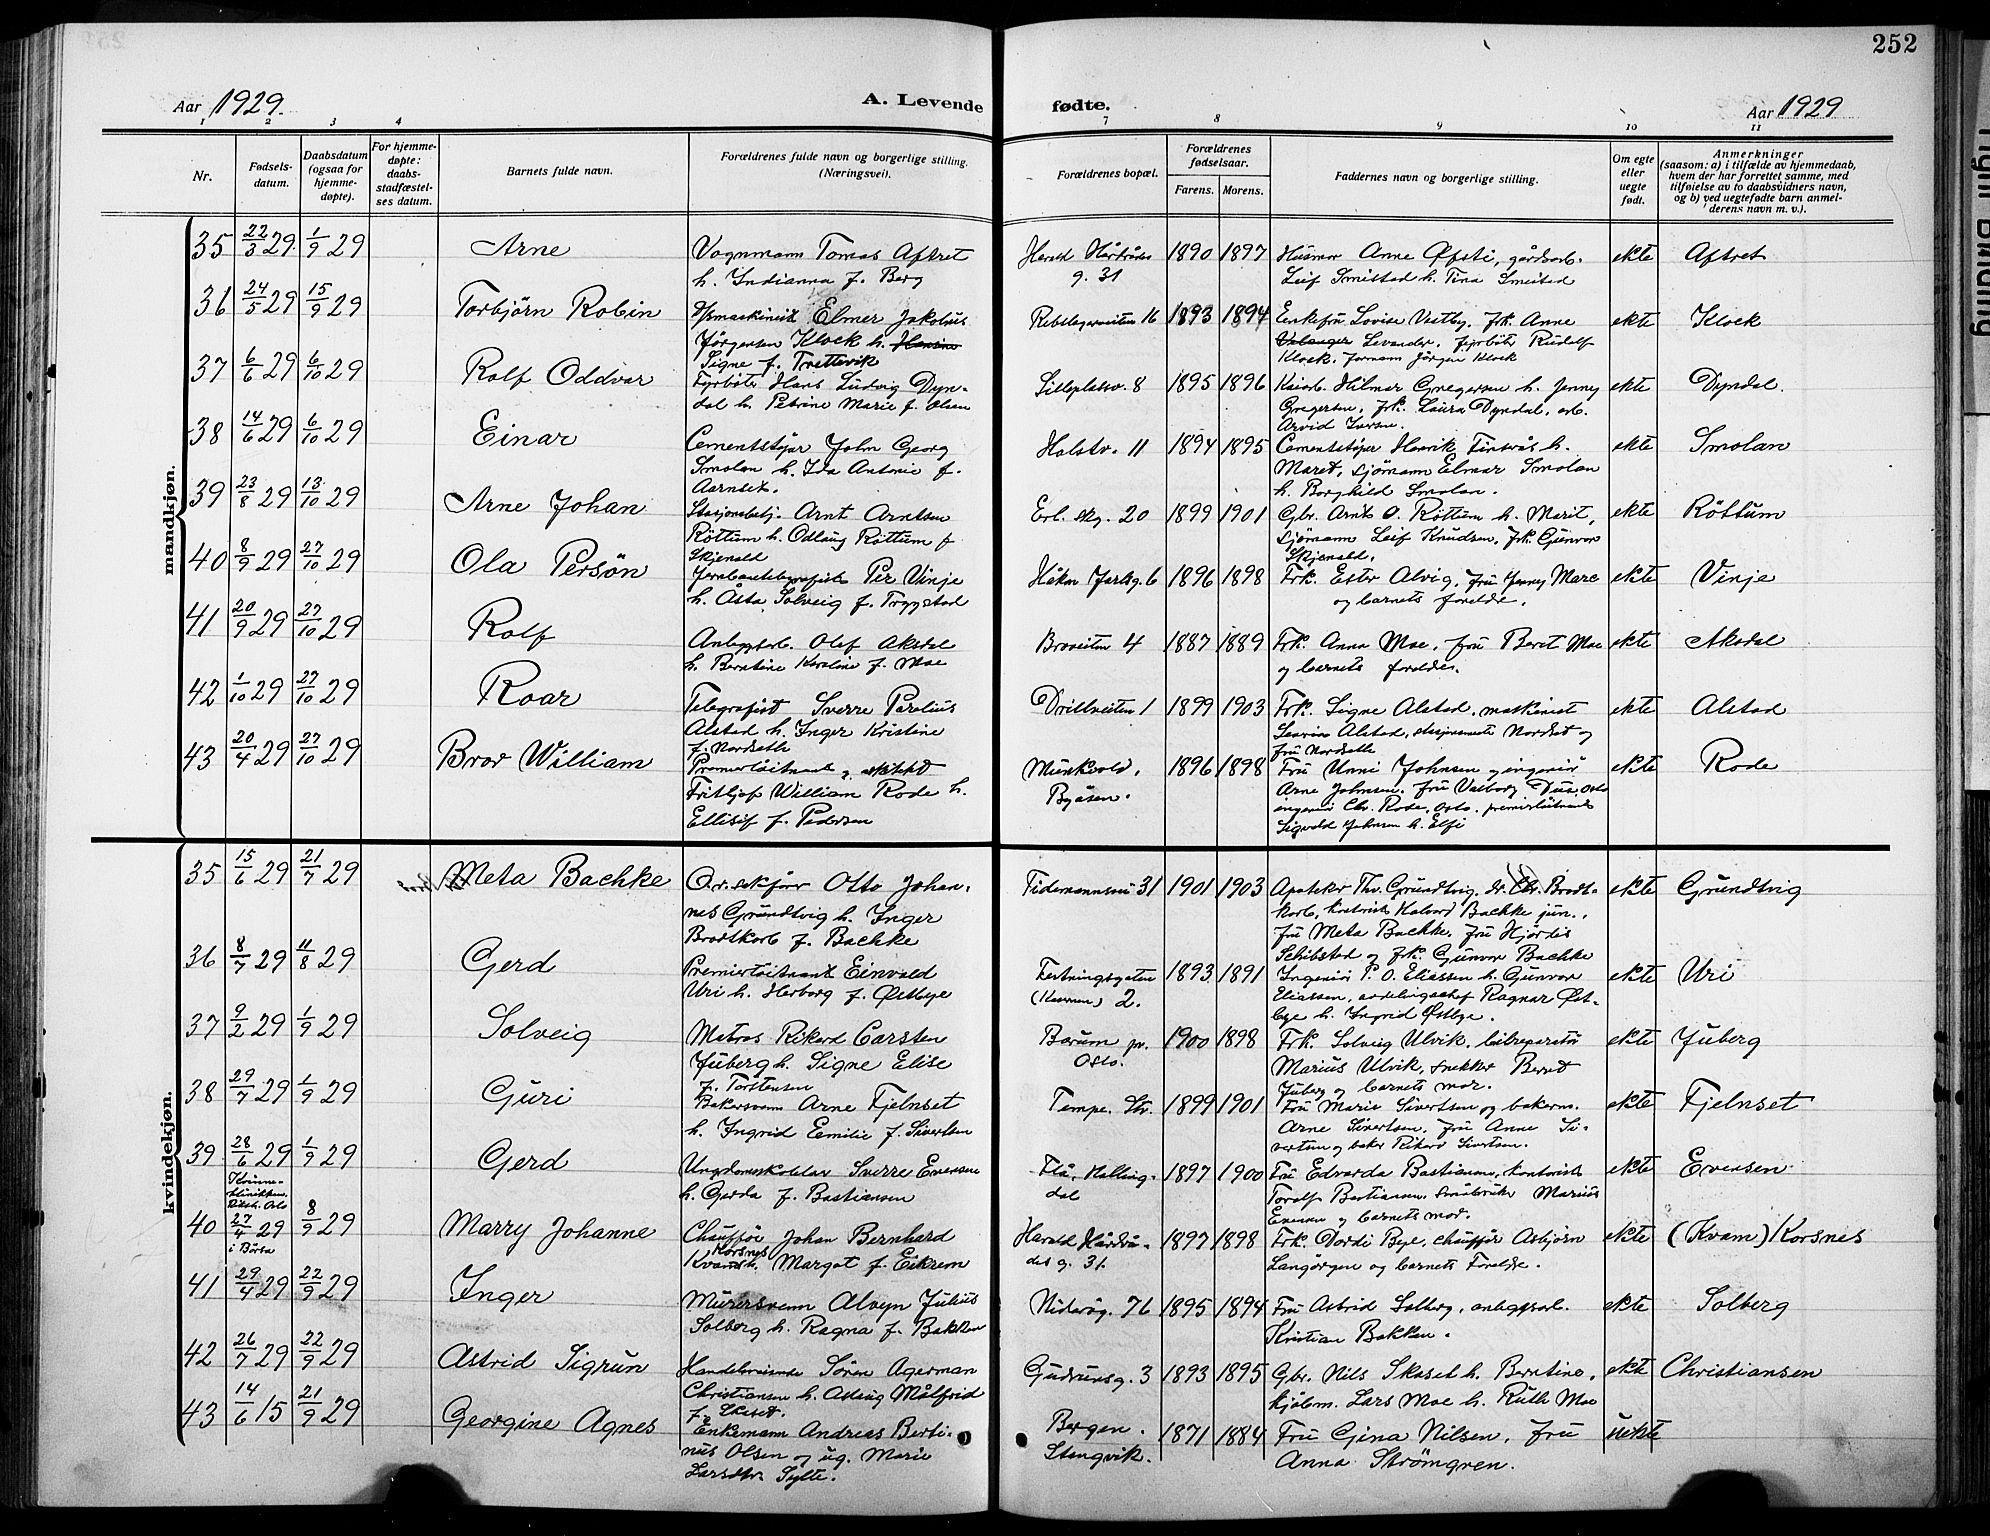 252
Aar 1929. A. Levende fødte. Aar 1929
1 2 3 4 7 8 9 10 11
Nr.
Fødsels-
datum.
Daabsdatum
(ogsaa for
hjemme-
døpte).
For hjemme-
døpte:
daabs-
stadfæstel-
ses datum.
Barnets fulde navn.
Forældrenes fulde navn og borgerlige stilling.
(Næringsvei).
Forældrenes bopæl.
Forældrenes
fødselsaar.
Farens. Morens.
Faddernes navn og borgerlige stilling.
Om egte
eller
uegte
født.
Anmerkninger
(saasom: a) i tilfælde av hjemmedaab,
hvem der har forrettet samme, med
tilføielse av to daabsvidners navn,
og b) ved uegtefødte barn anmel-
derens navn m. v.).
mandkjøn.
35 22/3 29 1/9 29 Arne
Vognmann Tomas Aftret
h. Indianna f. Berg
Harald Hårfrådes
g. 31
1890 1897
Husmor Anne Øfsti, gårdsarb.
Leif Smistad h. Tina Smistad
ekte Aftret
36 24/5 29 15/9 29 Torbjörn Robin
Elmer Jakobius
Jörgensen Klock h.
Signe f. Trettevik
Rebslagerveiten 16 1893 1894
Enkefru Lovise Vestby, frk. Anne
Levander, fyrböter Rudolf
Klock, formann Jörgen Klock
ekte Klock
37 6/6 29 6/10 29 Rolf Oddvar
Fyrböter Hans Ludvig Dyn-
dal h. Petrine Marie f. Olsen
Lilleplassv. 8 1895 1896
Kaiarb. Hilmar Gregersen h. Jenny
Gregersen, frk. Laura Dyndal, arb.
Arvid Iversen.
ekte Dyndal.
38 14/6 29 6/10 29 Einar
Cementstöper John Georg
Smolan h. Ida Antonie f.
Aarnset.
Holstv. 11 1894 1895
Cementstöper Henrik Finsrås h.
Maret, sjömann Elmar Smolan
h. Borghild Smolan.
ekte Smolan
39 23/8 29 13/10 29 Arne Johan
Stasjonsbetj. Arnt Arntsen
Röttum h. Odlaug Röttum f.
Skjenald
Erl. Skg. 20 1899 1901
Gbr. Arnt O. Röttum h. Marit,
sjömann Leif Knudsen, frk. Gunvor
Skjenald.
ekte Röttum
40 8/9 29 27/10 29 Ola Persön
Jernbanetelegrafist Per Vinje
h. Åsta Solveig f. Trygstad
Håkon Jarlsg. 6 1896 1898
Frk. Ester Alvig, fru Jenny Marc
og barnets foreldre.
ekte Vinje
41 20/9 29 27/10 29 Rolf
Anleggsarb. Olaf Aksdal
h. Berntine Karoline f. Moe
Broveiten 4 1887 1889
Frk. Anna Moe, fru Beret Moe
og barnets foreldre.
ekte Aksdal
42 1/10 29 27/10 29 Roar
Telegrafist Sverre Parelius
Alstad h. Inger Kristine
f. Nordseth
Drillveiten 1 1899 1903
Frk. Signe Alstad, maskinist
Severin Alstad, Nordset og
fru Nordseth
ekte Alstad
43 20/4 29 27/10 29 Bror William
Premierlöitnant og arkitekt
Fritjof William Rode h.
Ellisif f. Pedersen
Munkvold,
Byåsen.
1896 1898
Fru Unni Johnsen og ingeniör
Arne Johnsen, fru Valborg Due, Oslo
ingeniör Chr. Rode, Oslo, premierlöitnant
Sigvald Johnsen h. Elfi
ekte Rode
kvindekjøn.
35 15/6 29 21/7 29 Meta Bachke
O.r.sakförer Otto Johan-
nes Grundtvig h. Inger
Brodtkorb f. Bachke
Tidemannsvei 31 1901 1903
Apoteker Thv. Grundtvig, dr. Chr. Brodt-
korb, kontorist Halvard Bachke jun.,
fru Meta Bachke, fru Hjördis
Schibsted og frk. Gunvor Bachke
ekte Grundtvig
36 8/7 29 11/8 29 Gerd
Premierlöitnant Einvald
Uri h. Herborg f. Østbye
Festningsgaten
2.
1893 1891
Ingeniör P. O. Eliassen h. Gunvor
Eliassen, avdelingschef Ragnar Øst-
bye h. Ingrid Østbye.
ekte Uri
37 9/2 29 1/9 29 Solveig
Matros Rikard Carsten
Juberg h. Signe Elise
f. Torstensen
Bærum pr.
Oslo.
1900 1898
Frk. Solveig Ulvik, bilreparatör
Marius Ulvik, snekker Bernt
Juberg og barnets mor.
ekte Juberg
38 29/7 29 1/9 29 Guri
Bakersvenn Arne Fjelnset
h. Ingrid Emilie f. Sivertsen
Tempe. Str. 1899 1901
Fru Marie Sivertsen og bakerm.
Arne Sivertsen, fru Anne Si-
vertsen og baker Rikard Sivertsen.
ekte Fjelnset
39 28/6 29 1/9 29 Gerd
Kvinne-
klinikken,
Riksh. Oslo
Ungdomsskolelær. Sverre Evensen
h. Gerda f. Bastiansen
Flå, Halling-
dal
1897 1900
Fru Edvarda Bastiansen, kontorist
Toralf Bastiansen, småbruker Marius
Evensen og barnets mor.
ekte Evensen
40 27/4 29 8/9 29 Marry Johanne
i Börsa
Chaufför Johan Bernhard
Korsnes
Kvam h. Margot f. Eikrem
Harald Hårdrå-
des g. 31.
1897 1898
Frk. Dordi Bye, chaufför Asbjörn
Langörgen og barnets foreldre.
ekte (Kvam) Korsnes
41 29/4 29 22/9 29 Inger
Murersvenn Alveyn Julius
Solberg h. Ragna f. Bakken
Nidarög. 76 1895 1894
Fru Astrid Solberg, anleggsarb.
Kristian Bakken.
ekte Solberg
42 26/7 29 22/9 29 Astrid Sigrun
Handelsreisende Sören Agerman
Christiansen h. Aslaug Målfrid
f. Skeset.
Gudrunsg. 3 1893 1895
Gbr. Nils Skaset h. Berntine,
kjölem. Lars Moe h. Ruth Moe
ekte Christiansen
43 14/6 15 21/9 29 Georgine Agnes
Enkemann Andreas Berti-
nus Olsen og ug. Marie
Larsdtr. Sylte.
Bergen.
Stangvik.
1871 1884
Fru Gina Nilsen, fru
Anna Strömgren.
uekte